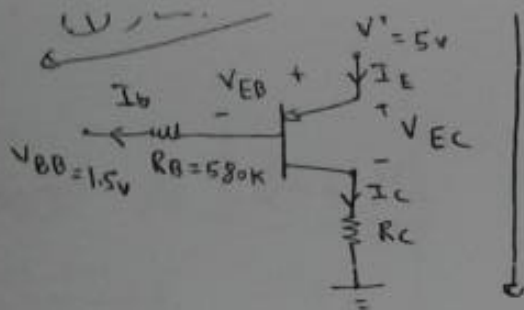 V⁺ = 5v
I_E
V_EB +
-
I_b
+
V_EC
-
V_BB = 1.5v
R_B = 580K
I_C
R_C